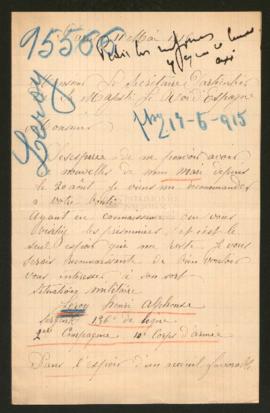 95566
11 Mai
Pedir los informes
y
Monsieur Le Secrétaire Particulier
de Sa Majesté le Roi d'Espagne
14-5-915
Leroy
Monsieur
Desespérée de ne pouvoir avoir
nouvelles de mon mari depuis
le 20 août je viens me recommander
à votre bonté
Ayant eu connaissance que vous
les prisonniers, c'est le
seul espoir qui me reste. Je vous
serais reconnaissante de bien vouloir
vous intéresser à son sort
Situation militaire
Leroy Henri Alphonse
Sergent 136e de ligne
2me Compagnie 10e Corps d'armée
Dans l'espoir d'un accueil favorable